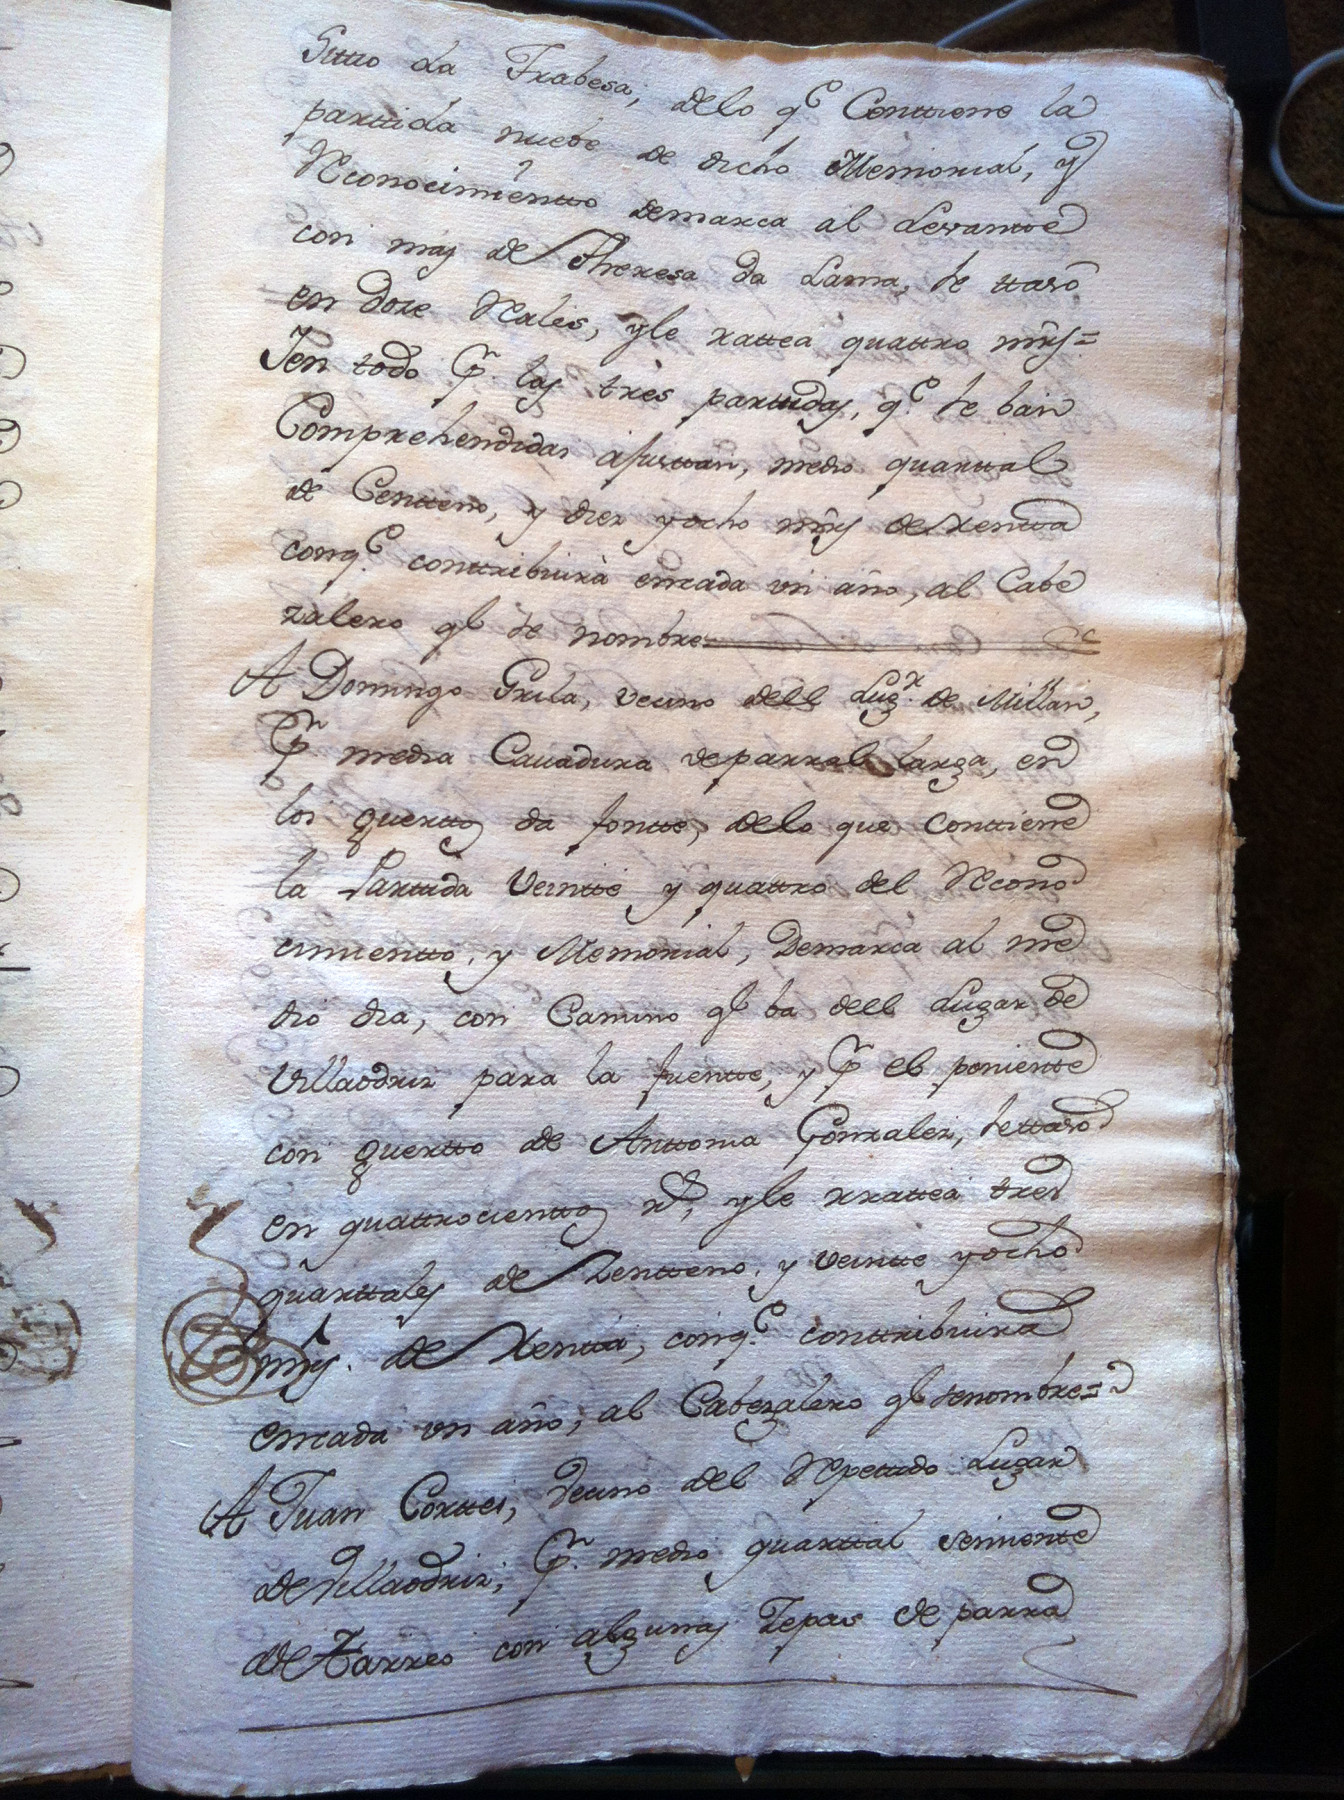 Sittio da Trabesa, delo q.e Conttiene la
partida nuebe de dicho Memorial, y
Reconocimientto demarca al Levantte
con mas de Theresa da Lama, se ttasó
en doze Reales, yle rattea quattro mrs=
Yen todo p.r las tres parttidas, q.e se ban
Comprehendidas ajusttan, medio quarttal
de Centteno, y diez yocho mrs de Rentta
conq.e conttribuirà encada un año, al Cabe
zalero q.e se nombre
A Domingo Grila, vecino dell Lug.r de Millan,
P.r media Cauadura de parral larga, en
los guerttos da fontte, delo que conttiene
la Parttida Veintte y quattro del Recono
cimientto, y Memorial, Demarca al me
dio dia, con Camino q.e ba dell Lugar de
Villaodriz para la fuentte, y p.r el poniente
con guertto de Anttonia Gonzalez, settasó
en quattrocienttos r.s, yle rrattea tres
quarttales de Zentteno, y veintte yocho
mrs. de Rentta, conq.e conttribuirá
encada un año, al Cabezalero q.e senombre=
A Juan Corttes, Vecino del Repetido Lugar
de Villaodriz, P.r medio quarttal semiente
de Tarreo con algunas Zepas de parra